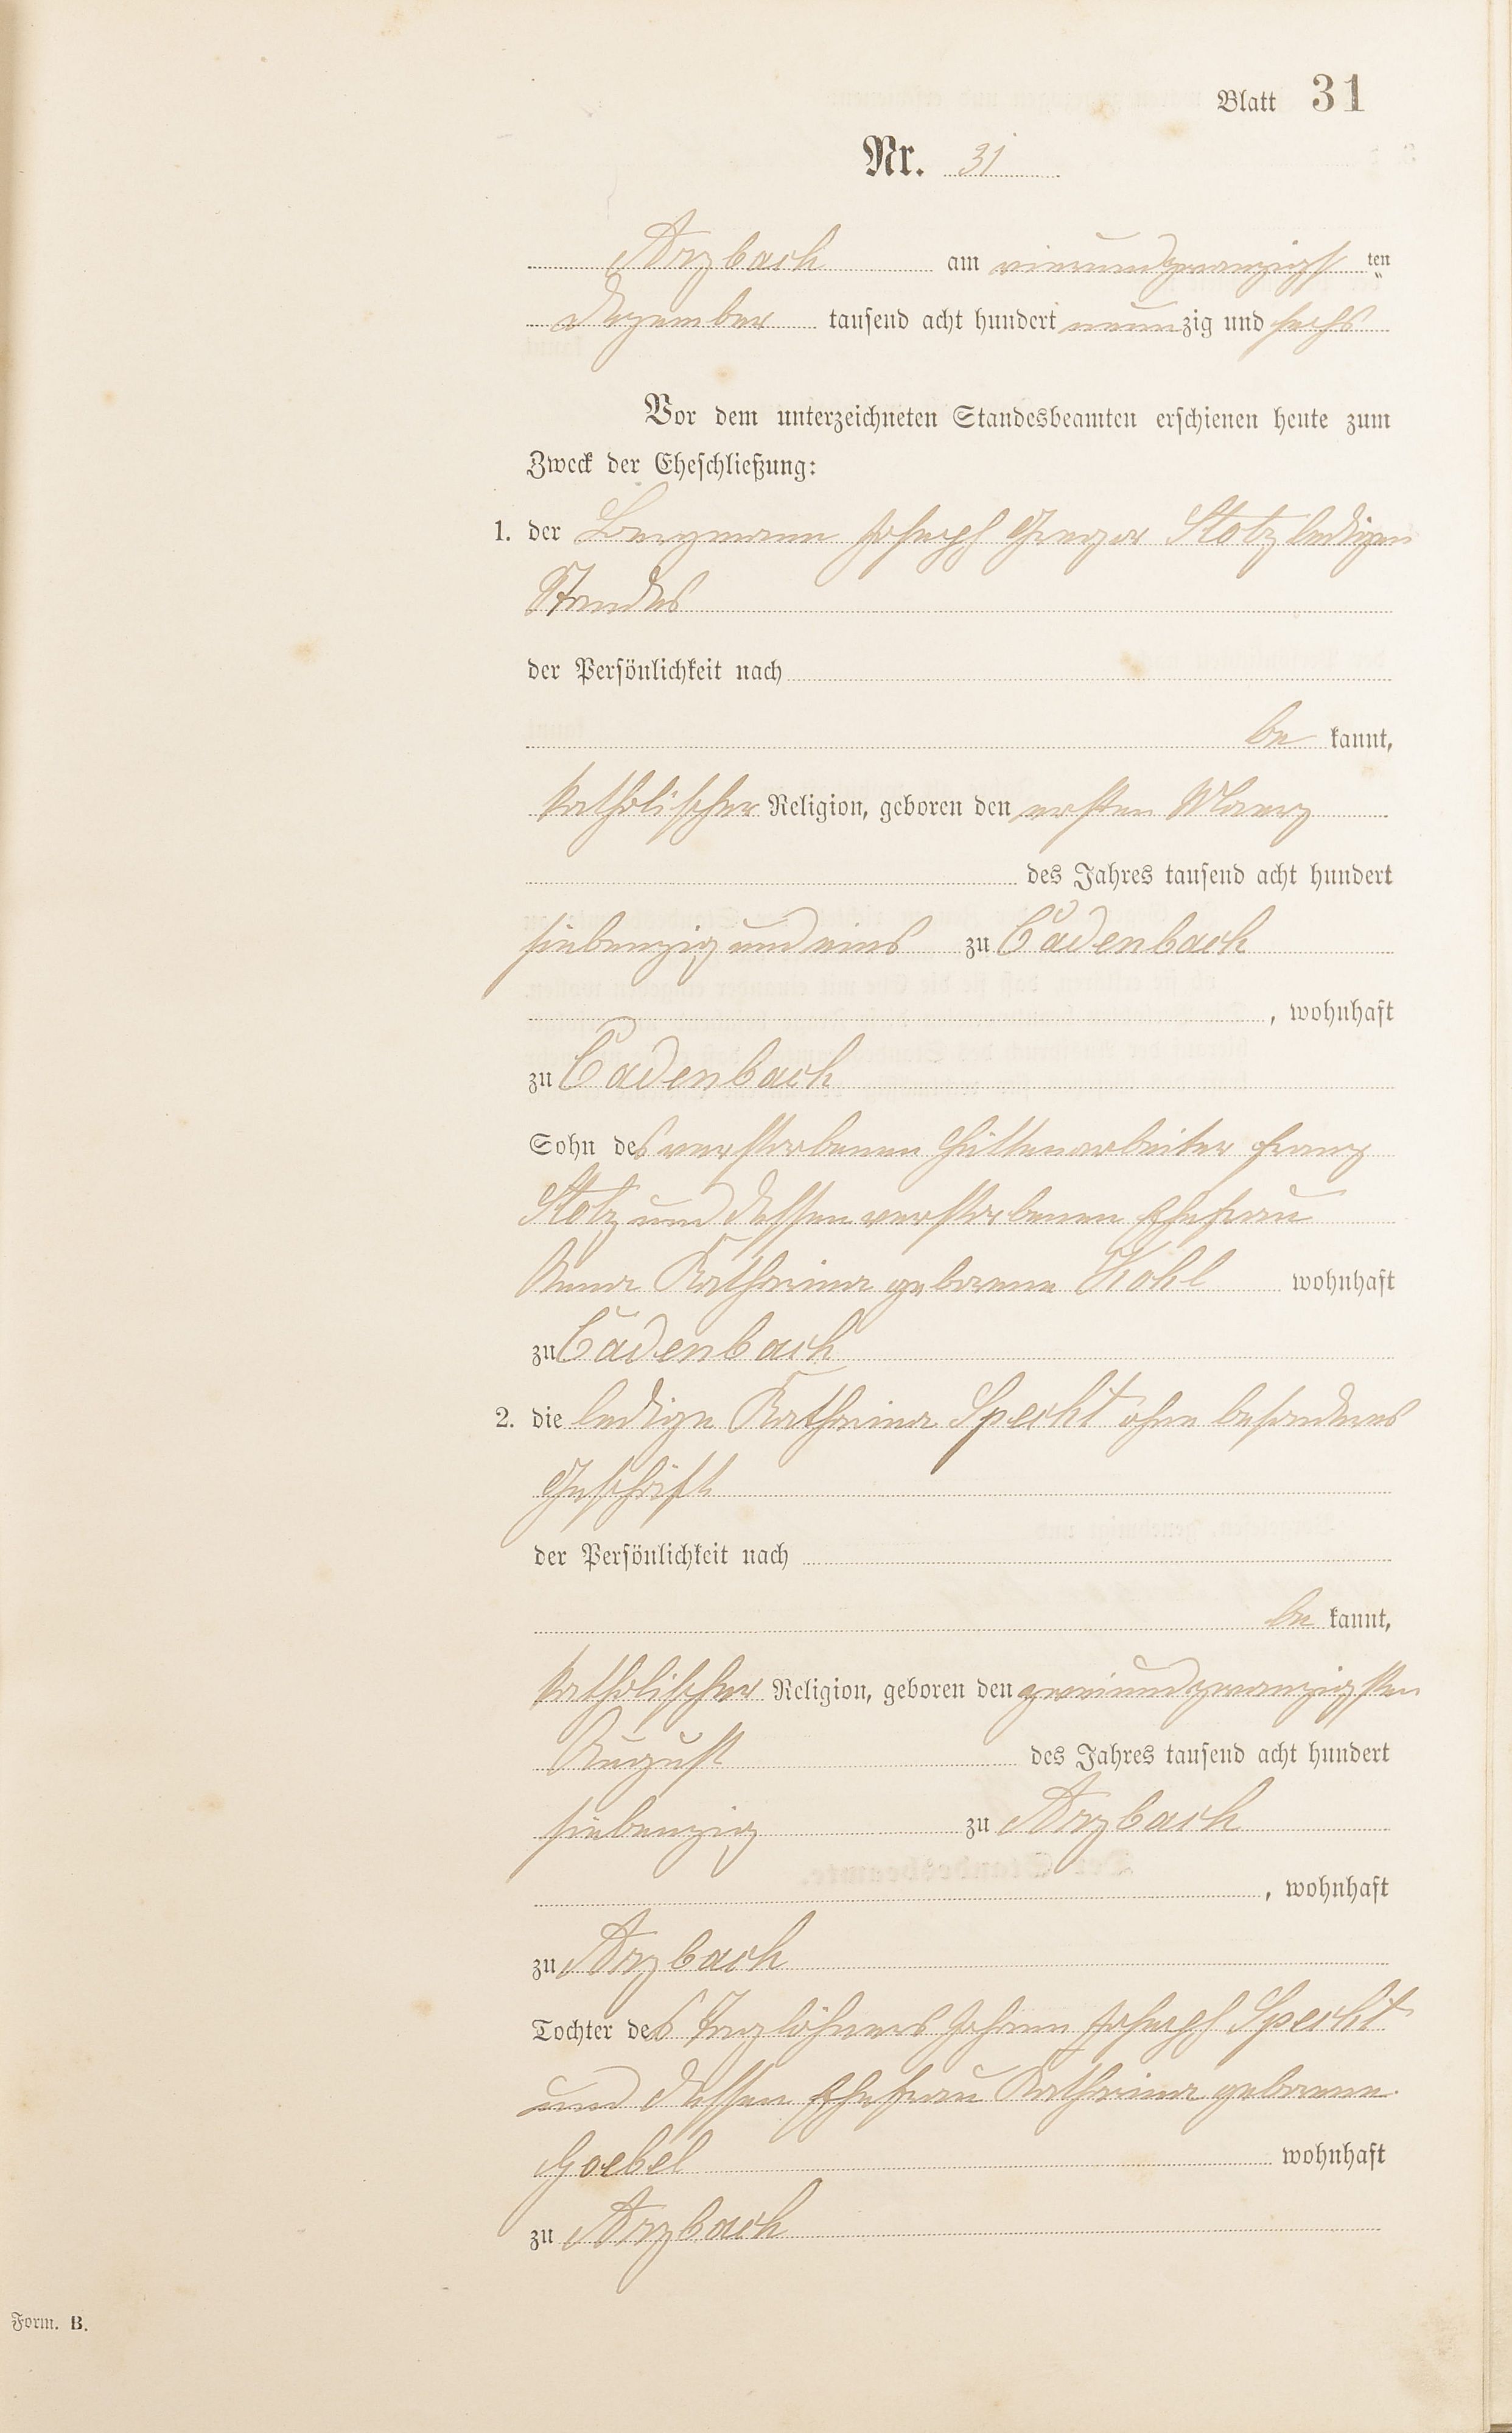 Blatt 31
Nr. 31
Arzbach am vierundzwanzigsten
Dezember tausend acht hundert neunzig und sechs
Vor dem unterzeichneten Standesbeamten erschienen heute zum
Zweck der Eheschließung:
1. der Bergmann Joseph Gregor Stotz ledigen
Standes
der Persönlichkeit nach
be kannt,
katholischer Religion, geboren den ersten Maerz
des Jahres tausend acht hundert
siebenzig und eins zu Cadenbach
, wohnhaft
zu Cadenbach
Sohn des verstorbenen Hüttenarbeiter Franz
Stotz und dessen verstorbenen Ehefrau
Anna Katharina geborene Kohl wohnhaft
zu Cadenbach
2. die ledige Katharina Specht ohne besonderes
Geschäft
der Persönlichkeit nach
be kannt,
katholischer Religion, geboren den zweiundzwanzigsten
August des Jahres tausend acht hundert
siebenzig zu Arzbach
, wohnhaft
zu Arzbach
Tochter des Taglöhners Johann Joseph Specht
und dessen Ehefrau Katharina geborene
Goebel wohnhaft
zu Arzbach
Form. B.